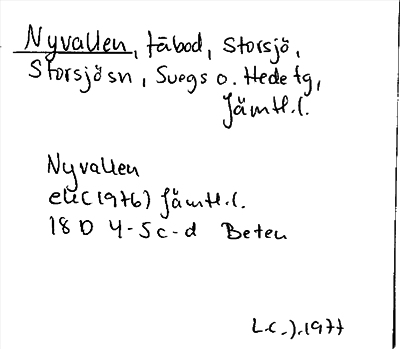 Nyvallen, fäbod, Storsjö,
Storsjö sn, Svegs o. Hede tg,
Jämtl.l.
Nyvallen
ek (1976) Jämtl.l.
18 D 4-5 c-d Beten
L.C.J. 1977